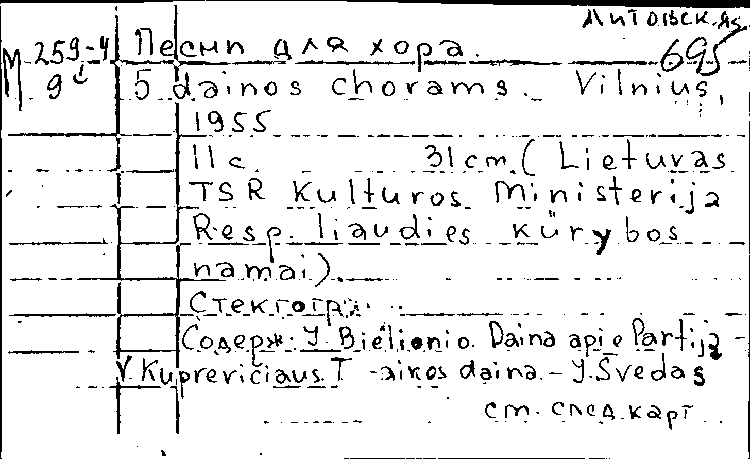 Литовск. яз
М 259-4 Песни для хора. 695
9 5 dainos chorams. Vilnius,
1955
11 с. 31 cm. (Lietuvas
TSR Kulturos Ministerija
Resp. liaudies kūrybos
namai).
Стеклогр.
Содерж: J. Bielionio. Daina apie Partiją -
V. Kuprevičiaus. T -aikos daina. - J. Švedas
см. след. карт